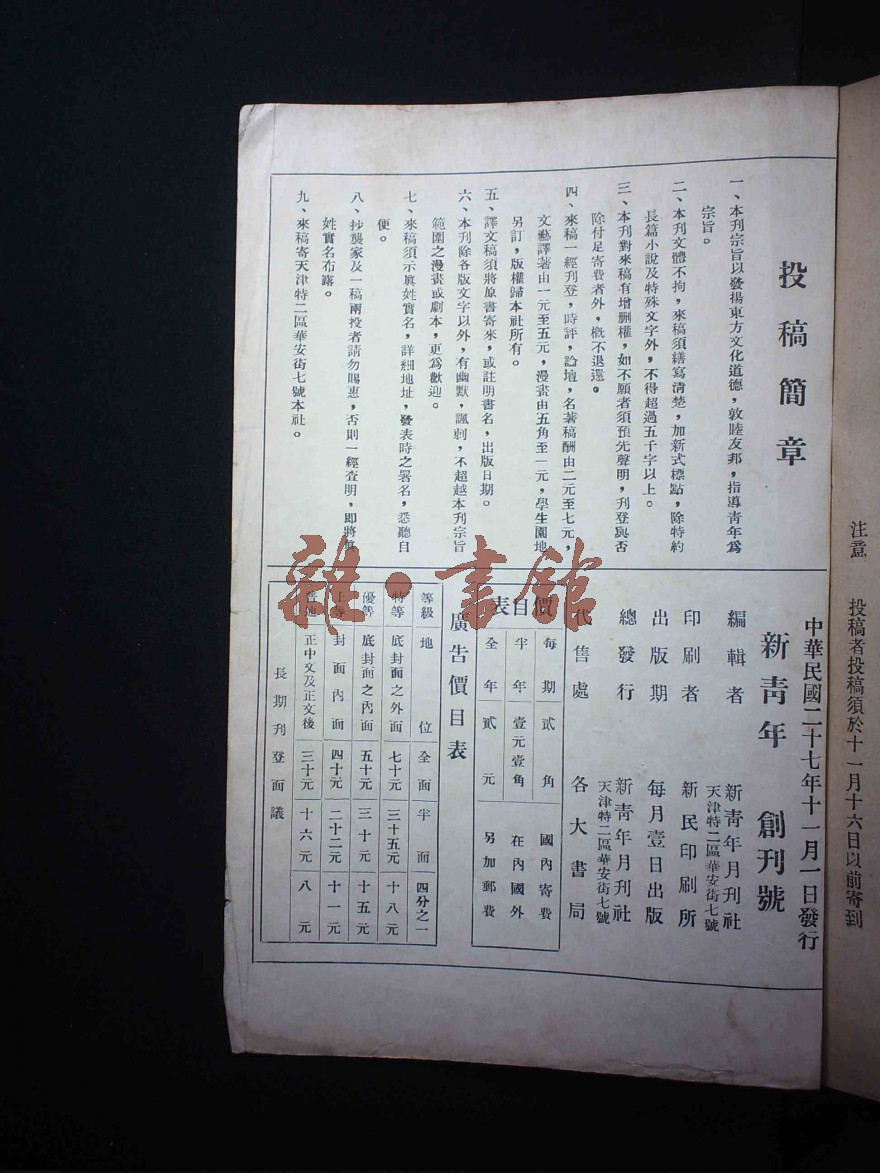 注意　投稿者投稿須於十一月十六日以前寄到
投稿簡章
一、本刊宗旨以發揚東方文化道德，敦睦友邦，指導靑年爲
宗旨。
二、本刊文體不拘，來稿須繕寫清楚，加新式標點，除特約
長篇小說及特殊文字外，不得超過五千字以上。
三、本刊對來稿有增删權，如不願者須預先聲明，刊登與否
除付足寄費者外，概不退還。
四、來稿一經刊登，時評，論壇，名著稿酬由二元至七元，
文藝譯著由一元至五元，漫畫由五角至一元，學生園地
另訂，版權歸本社所有。
五、譯文稿須將原書寄來，或註明書名，出版日期。
六、本刊除各版文字以外，有幽默，諷刺，不超越本刊宗旨
範圍之漫畫或劇本，更爲歡迎。
七、來稿須示眞姓實名，詳細地址，發表時之署名，悉聽自
便。
八、抄襲家及一稿兩投者請勿賜惠，否則一經查明，即將眞
姓實名布露。
九、來稿寄天津特二區華安街七號本社。
中華民國二十七年十一月一日發行
新靑年　創刊號
編輯者　新靑年月刊社
天津特二區華安街七號
印刷者　新民印刷所
出版期　每月壹日出版
總發行　新靑年月刊社
天津特二區華安街七號
代售處　各大書局
價目表
每期　貳角　國內寄費
半年　壹元壹角　在內國外
全年　貳元　另加郵費
廣告價目表
等級　地位　全面　半面　四分之一
特等　底封面之外面　七十元　三十五元　十八元
優等　底封面之內面　五十元　三十元　十五元
上等　封面內面　四十元　二十二元　十一元
普通　正中文及正文後　三十元　十六元　八元
長期刊登面議
雜·書館